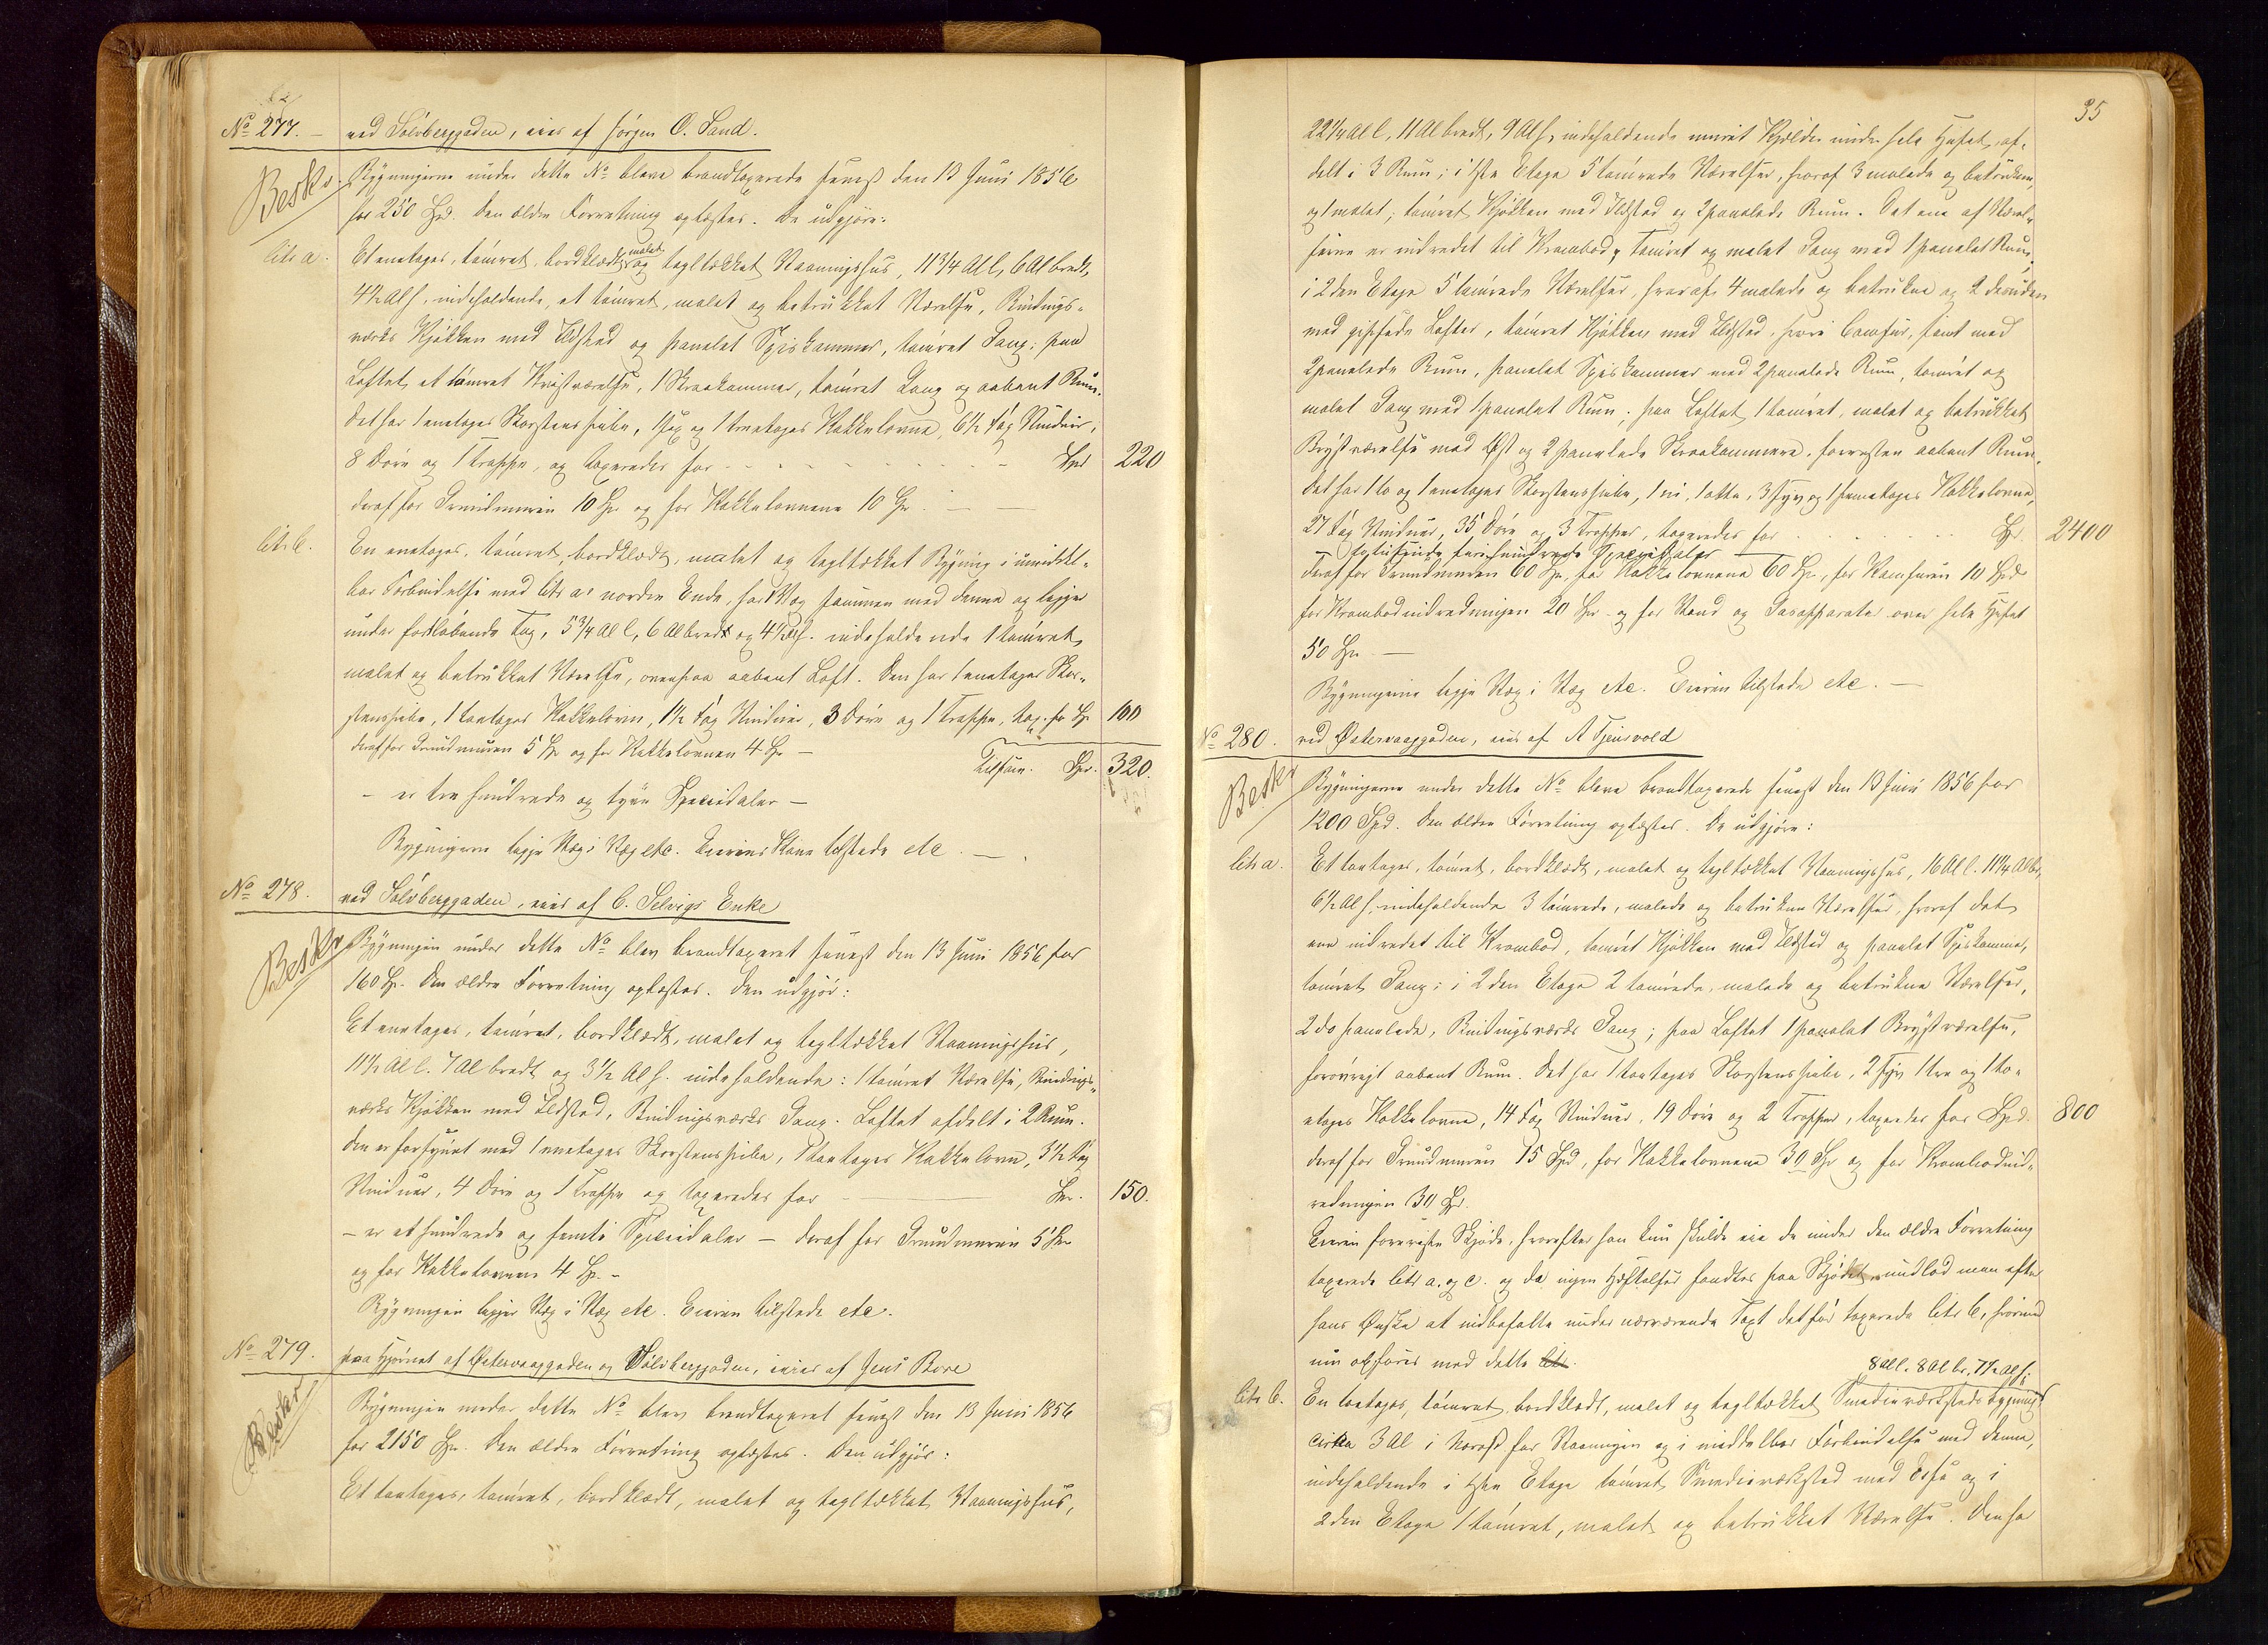 No 277. — ved Sølvberggaden, eies af Jørgen O. Sand.
Beskr. Bygningerne under dette No bleve brandtaxerede senest den 13 Juni 1856
for 250 Spd. Den ældre Forretning oplæstes. De udgjøre:
Litr a. Et enetages, tømret, bordklædt, malet og tegltækket Vaaningshus, 11 3/4 Al l, 6 Al bredt,
4 1/2 Al h, indeholdende, et tømret, malet og betrukket Værelse, Bindings-
værks Kjøkken med Ildsted og panelet Spiskammer, tømret Gang; paa
Loftet et tømret Kvistværelse, 1 Skraakammer, tømret Gang og aabent Rum.
Det har 1 enetages Skorstenspibe, 1 sex og 1 treetages Kakkelovne, 6 1/2 Fag Vinduer,
8 Døre og 1 Trappe, og taxeredes for - - - Spd 220
deraf for Grundmuren 10 Spd og for Kakkelovnene 10 Spd. —
Litr b. En enetages, tømret, bordklædt, malet og tegltækket Bygning i umiddel-
bar Forbindelse med Litr a's nordre Ende, har Væg sammen med denne og ligger
under fortløbende Tag, 5 3/4 Al l, 6 Al bredt og 4 1/2 Al h. indeholdende 1 tømret,
malet og betrukket Værelse, ovenpaa aabent Loft. Den har 1 enetages Skor-
stenspibe, 1 toetages Kakkelovn, 1 1/2 Fag Vinduer, 3 Døre og 1 Trappe, tax. for Spd 100
deraf for Grundmuren 5 Spd og for Kakkelovnen 4 Spd —
Tilsam. Spd. 320.
- er tre hundrede og tyve Speciedaler —
Bygningerne ligge Væg i Væg etc. Eierens Kone tilstede etc. —
No 278. ved Sølvberggaden, eies af C. Selvigs Enke
Beskr Bygningen under dette No blev brandtaxeret senest den 13 Juni 1856 for
160 Spd. Den ældre Forretning oplæstes. Den udgjør:
Et enetages, tømret, bordklædt, malet og tegltækket Vaaningshus,
11 1/2 Al l. 7 Al bredt og 3 1/2 Al h. indeholdende: 1 tømret Værelse, Bindings-
værks Kjøkken med Ildsted, Bindingsværks Gang. Loftet afdelt i 2 Rum.
Den er forsynet med 1 enetages Skorstenspibe, 1 toetages Kakkelovn, 3 1/2 Fag
Vinduer, 4 Døre og 1 Trappe og taxeredes for — Spd. 150.
- er et hundrede og femti Speciedaler — deraf for Grundmuren 5 Spd
og for Kakkelovnen 4 Spd. -
Bygningen ligger Væg i Væg etc. Eieren tilstede etc.
No 279. paa Hjørnet af Østervaaggaden og Sølvberggaden, eies af Jens Bore
Beskr Bygningen under dette No blev brandtaxeret senest den 13 Juni 1856
for 2150 Spd. Den ældre Forretning oplæstes. Den udgjør:
Et toetages, tømret, bordklædt, malet og tegltækket Vaaningshus,
35
22 1/4 Al l, 11 Al bredt, 9 Al h, indeholdende muret Kjælder under hele Huset, af-
delt i 3 Rum; i 1ste Etage 5 tømrede Værelser, hvoraf 3 malede og betrukne,
og 1 malet; tømret Kjøkken med Ildsted og 2 panelede Rum. Det ene af Værel-
serne er indredet til Krambod, tømret og malet Gang med 1 panelet Rum,
i 2den Etage 5 tømrede Værelser, hvoraf 4 malede og betrukne og 2 desuden
med gipsede Lofter, tømret Kjøkken med Ildsted, hvori Comfur, samt med
2 panelede Rum, panelet Spiskammer med 2 panelede Rum, tømret og
malet Gang med 1 panelet Rum; paa Loftet 1 tømret, malet og betrukket
Brystværelse med Øst og 2 panelede Skraakammere, forresten aabent Rum.
Det har 1 to og 1 enetages Skorstenspibe, 1 ni, 1 otte, 3 syv og 1 femetages Kakkelovne,
27 Fag Vinduer, 35 Døre og 3 Trapper, taxeredes for - - - Spd. 2400
— totusinde firehundrede Speciedaler —
deraf for Grundmuren 60 Spd, for Kakkelovnene 60 Spd, for Kamfuren 10 Spd
for Krambodindredningen 20 Spd og for Vand og Gasapparater over hele Huset
50 Spd —
Bygningerne ligge Væg i Væg etc. Eieren tilstede etc. —
No 280. ved Østervaaggaden, eies af A Tjensvold
Beskr Bygningerne under dette No bleve brandtaxerede senest den 13 Juni 1856 for
1200 Spd. Den ældre Forretning oplæstes. De udgjøre:
Litr a. Et toetages, tømret, bordklædt, malet og tegltækket Vaaningshus, 16 Al l. 11 1/4 Al br,
6 1/2 Al h, indeholdende 3 tømrede, malede og betrukne Værelser, hvoraf det
ene indredet til Krambod, tømret Kjøkken med Ildsted og panelet Spiskammer,
tømret Gang; i 2den Etage 2 tømrede, malede og betrukne Værelser,
2 do panelede, Bindingsværks Gang; paa Loftet 1 panelet Brystværelse,
forøvrigt aabent Rum. Det har 1 toetages Skorstenspibe, 2 syv 1 tre og 1 to-
etages Kakkelovne, 14 Fag Vinduer, 19 Døre og 2 Trapper, taxeredes for Spd. 800
deraf for Grundmuren 15 Spd, for Kakkelovnene 30 Spd og for Krambodind-
redningen 30 Spd.
Eieren foreviste Skjøde, hvorefter han kun skulde eie de under den ældre Forretning
taxerede Litr a. og c. og da ingen Hæftelser fandtes paa Skjødet, undlod man efter
hans Ønske at indbefatte under nærværende Taxt det før taxerede Litr b, hvormed
nu opføres med dette Litr.
8 Al l. 8 Al br. 7 1/2 Al h.
Litr b. En toetages, tømret, bordklædt, malet og tegltækket Smedieværkstedsbygning
cirka 3 Al i Norost for Vaaningen og i middelbar Forbindelse med denne,
indeholdende i 1ste Etage tømret Smedieværksted med Esse og i
2den Etage 1 tømret, malet og betrukket Værelse. Den har